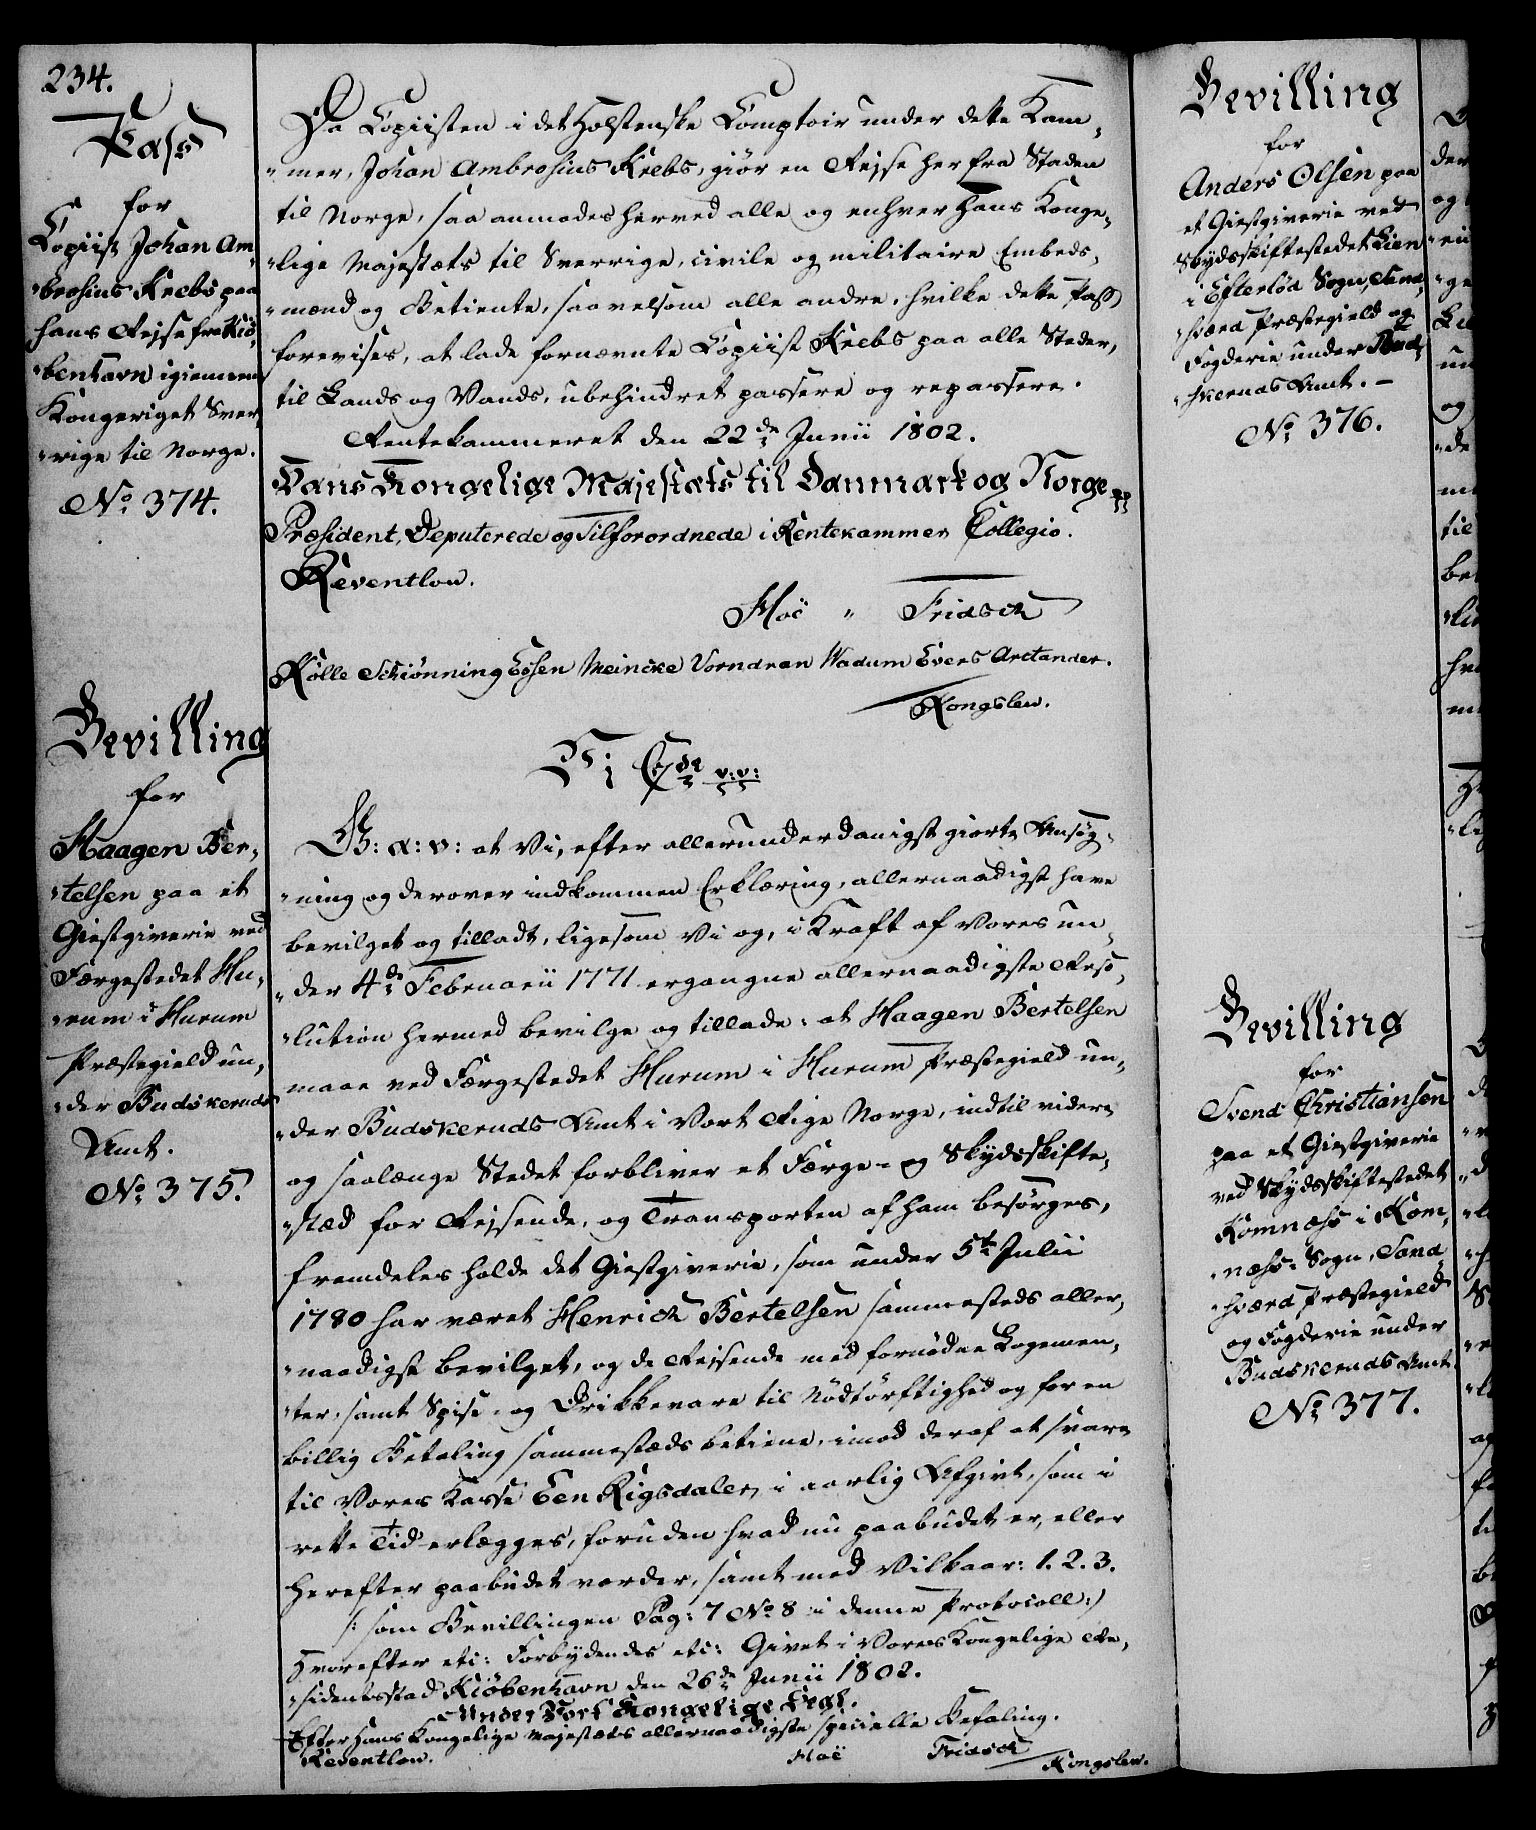 234.
Pass
for
Copiist Johan Am-
-brosius Krebs paa
hans Rejse fra Kiø-
-benhavn igiennem
Kongeriget Sver-
-rige til Norge.
No 374.
Da Copiisten i det Holstenske Comptoir under dette Kam-
-mer, Johan Ambrosius Krebs, giør en Rejse her fra Staden
til Norge, saa anmodes herved alle og enhver Hans Konge-
-lige Majestæts til Sverrige, civile og militaire Embeds-
-mænd og Betiente, saavelsom alle andre, hvilke dette Pass
forevises, at lade fornævnte Copiist Krebs paa alle Steder,
til Lands og Vands, ubehindret passere og repassere.
Rentekammeret den 22de Junii 1802.
Hans Kongelige Majestæts til Danmark og Norge pp
Præsident, Deputerede og Tilforordnede i Rentekammer Collegio.
Reventlow.
Hoë " Fridsch
Kølle Schiønning Essen Meincke Vorndran Wadum Evers Arctander.
Kongslew.
Bevilling
for
Haagen Ber-
-telsen paa et
Giestgiverie ved
Færgestedet Hu-
-rum i Hurum
Præstegield un-
-der Budskeruds
Amt.
No 375.
V: C 7de v:v:
G: a: v: at Vi, efter allerunderdanigst giorte Ansøg-
-ning og derover indkommen Erklæring, allernaadigst have
bevilget og tilladt, ligesom Vi og, i Kraft af Vores un-
-der 4de Februarii 1771 ergangne allernaadigste Reso-
-lution hermed bevilge og tillade: at Haagen Bertelsen
maae ved Færgestedet Hurum i Hurum Præstegield un-
-der Budskeruds Amt i Vort Rige Norge, indtil videre
og saalænge Stedet forbliver et Færge- og Skydsskifte-
-stæd for Rejsende, og Transporten af ham besørges,
fremdeles holde det Giestgiverie, som under 5te Julii
1780 har været Henrich Bertelsen sammesteds aller-
-naadigst bevilget, og de Rejsende med fornødne Logemen-
-ter, samt Spise- og Drikkevare til Nødtørftighed og for en
billig Betaling sammestæds betiene, imod deraf at svare
til Vores Kasse Een Rigsdaler, i aarlig Afgivt, som i
rette Tid erlægges, foruden hvad nu paabudet er, eller
herefter paabudet vorder, samt med Vilkaar: 1. 2. 3.
/: som Bevillingen Pag: 7 No 8 i denne Protocoll:/
Hvorefter etc: Forbydendes etc: Givet i Vores Kongelige Re-
-sidentsstad Kiøbenhavn den 26de Junii 1802.
Under Vort Kongelige Segl.
Efter Hans Kongelige Majestæts allernaadigste specielle Befaling.
Reventlow. Hoë Fridsch Kongslew.
Bevilling
for
Anders Olsen paa
et Giestgiverie ved
Skydsskiftestedet Lien
i Efterlød Sogn, Sand-
-hværd Præstegield og
Fogderie under Bud-
-skeruds Amt. -
No 376.
Bevilling
for
Svend Christiansen
paa et Giestgiverie
ved Skydsskiftestedet
Komnæss i Kom-
-næss- Sogn, Sand-
-hværd Præstegield
og Fogderie under
Budskeruds Amt
No 377.